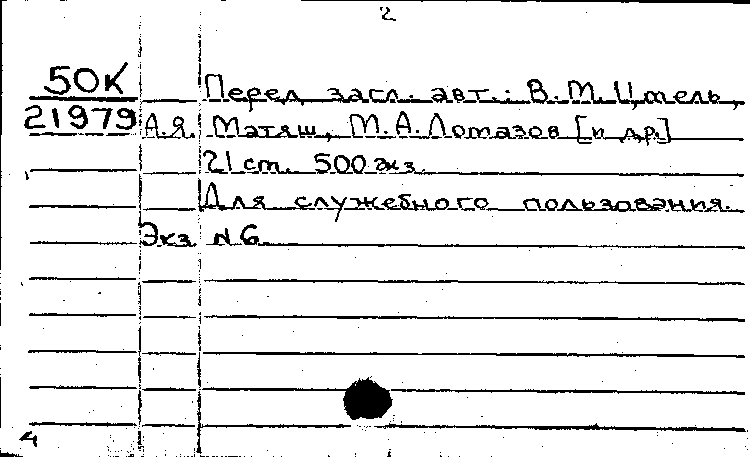 2
50К Перед загл. авт.: В.М. Цмель,
21979 А.Я. Матяш, М.А. Ломазов [и др.]
21 ст. 500 экз.
Для служебного пользования.
Экз N6
4